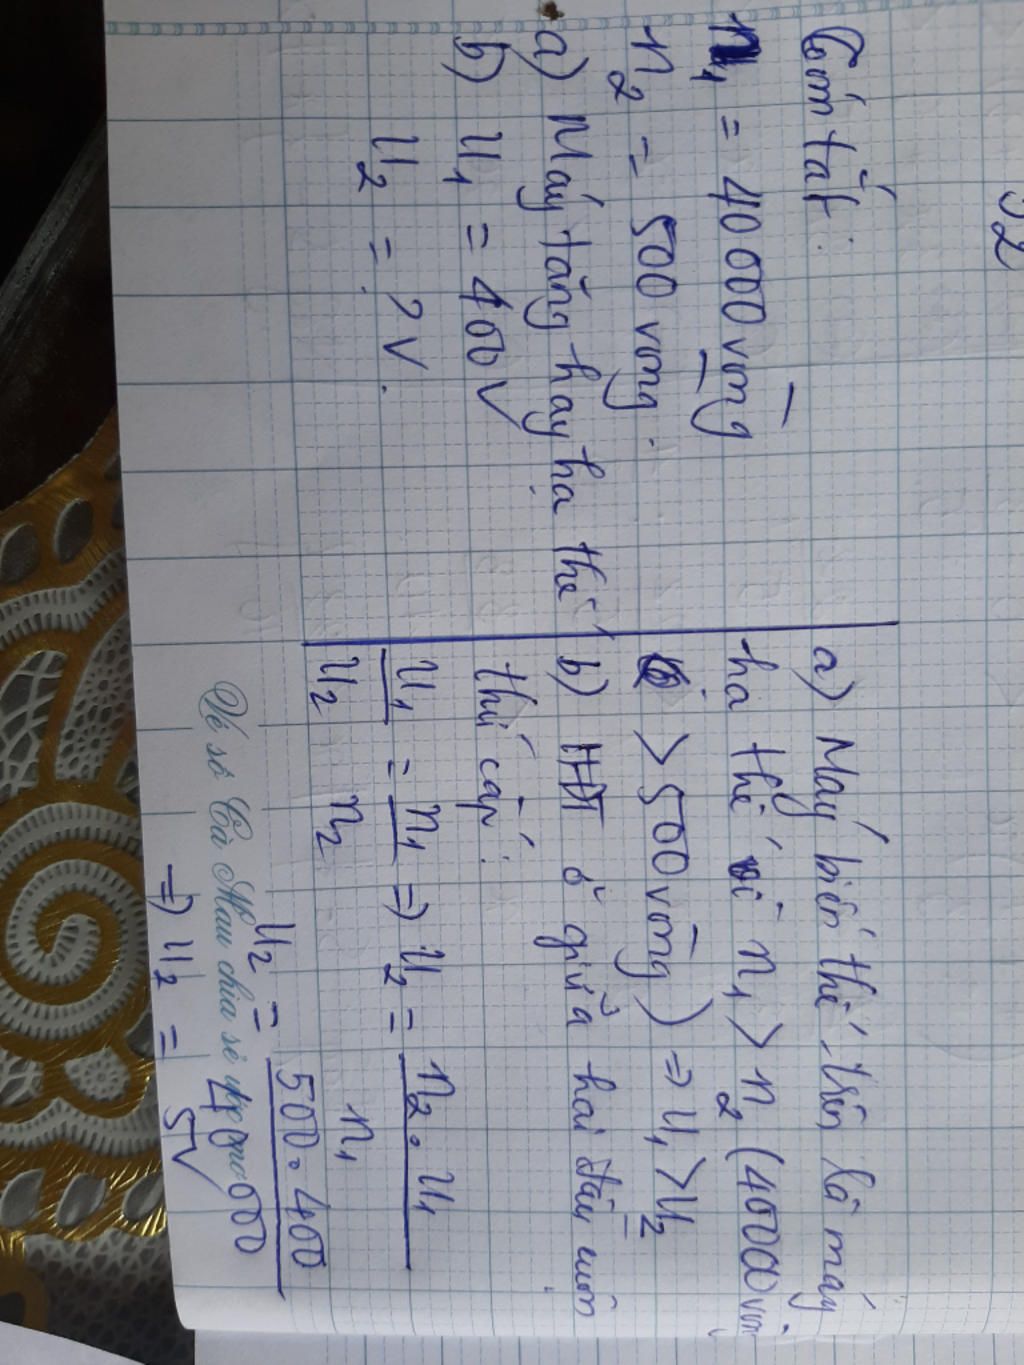 32
Tóm tắt:
n1 = 40 000 vòng
n2 = 500 vòng.
a) Máy tăng hay hạ thế
b) U1 = 400V
U2 = ? V.
a) Máy biến thế trên là máy
hạ thế vì n1 > n2 (40000 vòng
> 500 vòng) => U1 > U2
b) HĐT ở giữa hai đầu cuôn
thứ cấp:
U1/U2 = n1/n2 => U2 = n2.U1/n1
U2 = 500.400/40 000
Vé số Cà Mau chia sẻ
=> U2 = 5V